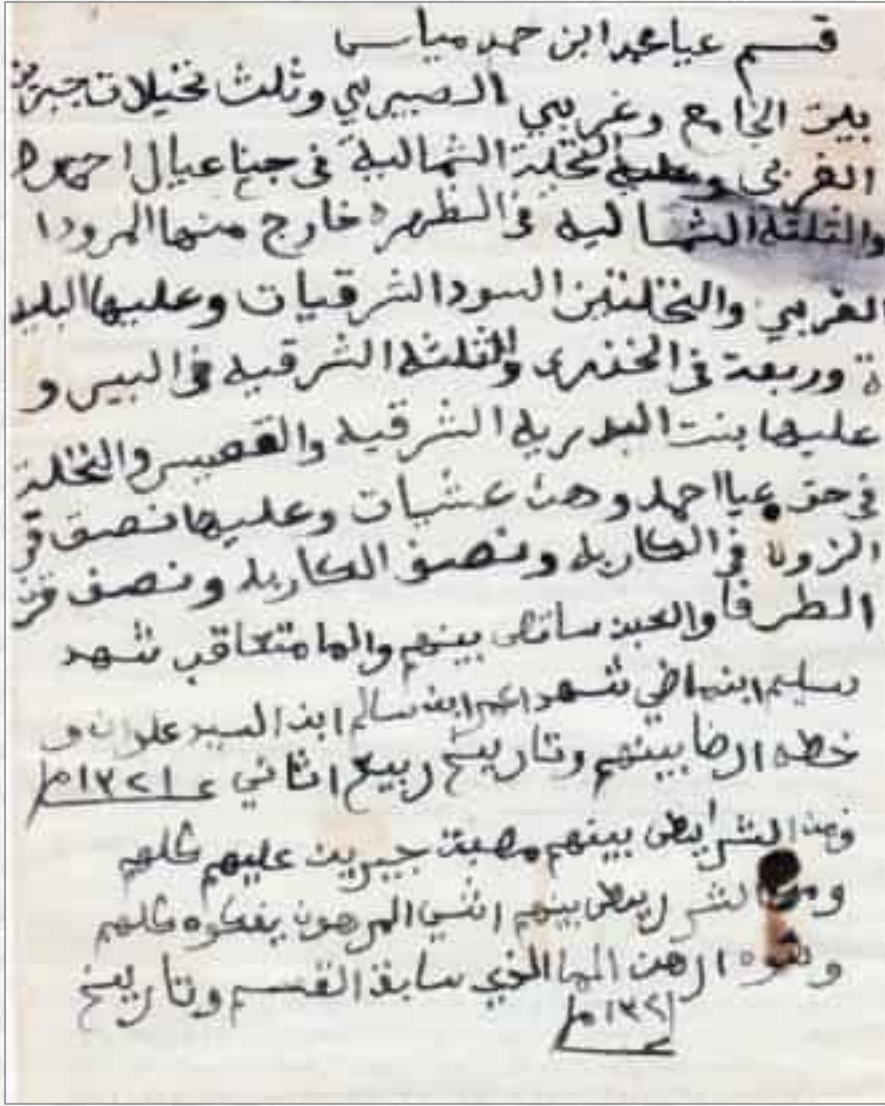 قسم عيا عبد ابن حمد مياسى
بين الجامع وغربي الصبيربي وثلث نخيلات جبرين
الغربى النخلة الشمالية فى جبنا عيال احمد
والثلثه الشماليه فى الظهره خارج منها المرودا
الغربي والنخلتين السود الشرقيات وعليها البليد
ة وربعة فى الخندى والثلثه الشرقيه فى البير و
عليها بنت البدريه الشرقيه والقصير والنخلة
فى حق عيا احمد وهن عشيات وعليها نصف قر
الزونا فى الكاربه ونصف الكاربه ونصف قرن
الطرفا والعبد ساقط بينهم والما متعاقب شهد
سليم ابن ماضي شهد اعمر ابن سالم ابن السيد علوان و
خطه الرضا بينهم وتاريخ ربيع اثاني ١٣٢١م
ومن الشرايط بينهم مصبة جبرين عليهم كلهم
الشرايط بينهم انشي المرهون يفكوه كلهم
الرهن الما الذي سابق القسم وتاريخ
١٣٢١م